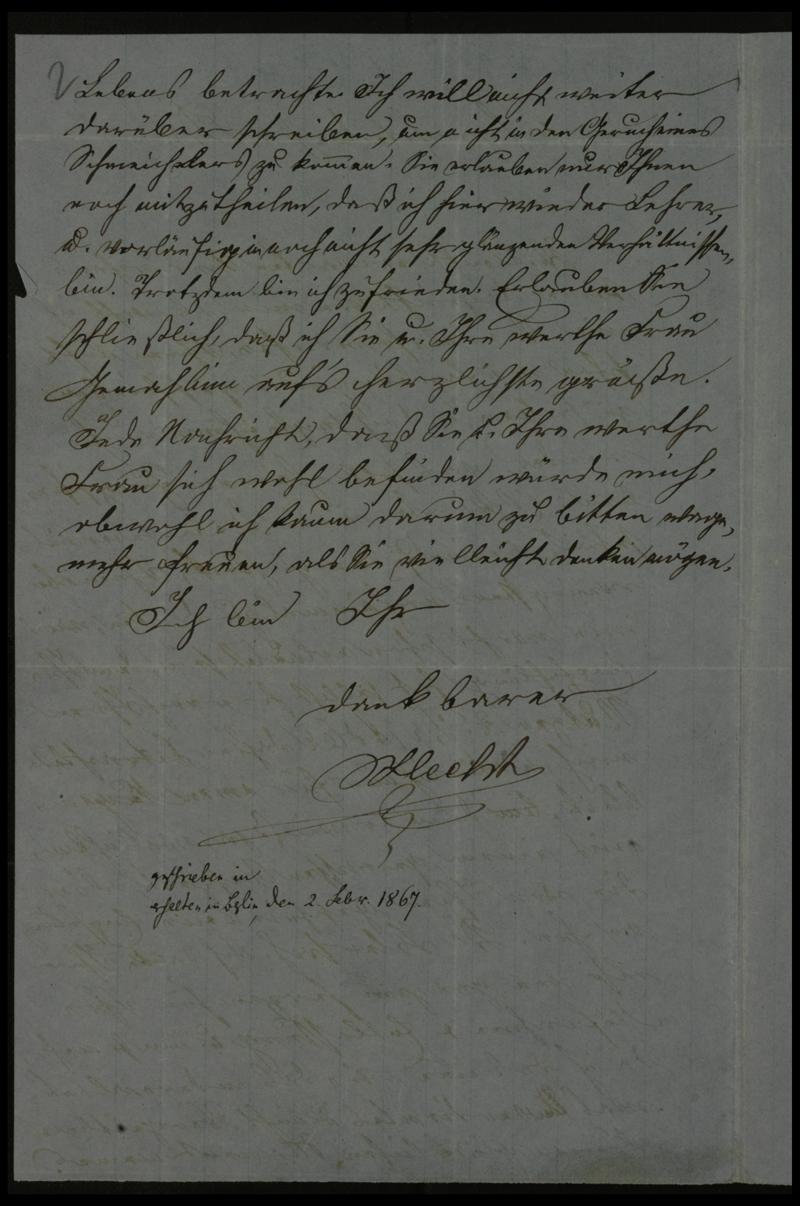 Lebens betrachte. Ich will nicht weiter
darüber schreiben, um nicht in den Geruch eines
Schmeichlers zu kommen. Sie erlauben nur Ihnen
noch mitzutheilen, daß ich hier wieder Lehrer,
u. vorläufig in noch nicht sehr glänzenden Verhältnissen,
bin. Trotzdem bin ich zufrieden. Erlauben Sie
schließlich, daß ich Sie u. Ihre werthe Frau
Gemahlinn auf's herzlichste grüße.
Jede Nachricht, daß Sie u. Ihre werthe
Frau sich wohl befinden würde mich,
obwohl ich kaum darum zu bitten wage,
mehr freuen, als Sie vielleicht denken mögen.
Ich bin Ihr
dankbarer
Hecht
geschrieben in
erhalten in Berlin, den 2. Febr. 1867.